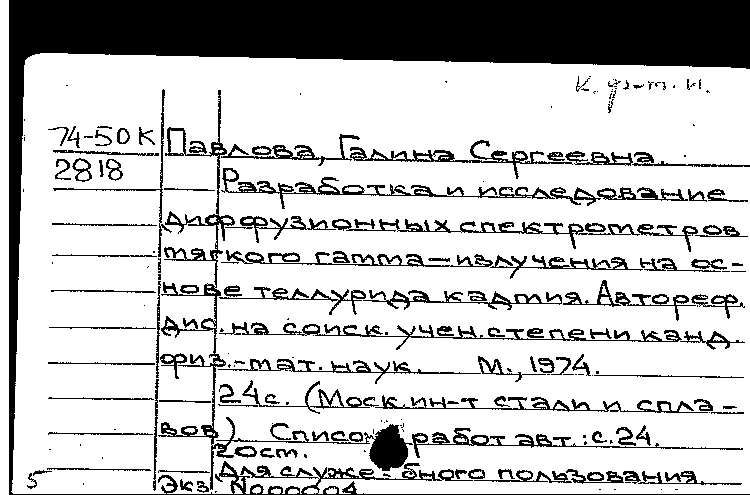 К. ф-м. н.
74-50К Павлова, Галина Сергеевна.
2818 Разработка и исследование
диффузионных спектрометров
мягкого гамма-излучения на ос-
нове теллурида кадмия. Автореф.
дис. на соиск. учен. степени канд.
физ.-мат. наук. М., 1974.
24с. (Моск. ин-т стали и спла-
вов). Список работ авт.: с.24.
20ст.
Для служе-бного пользования.
5 Экз. №00004